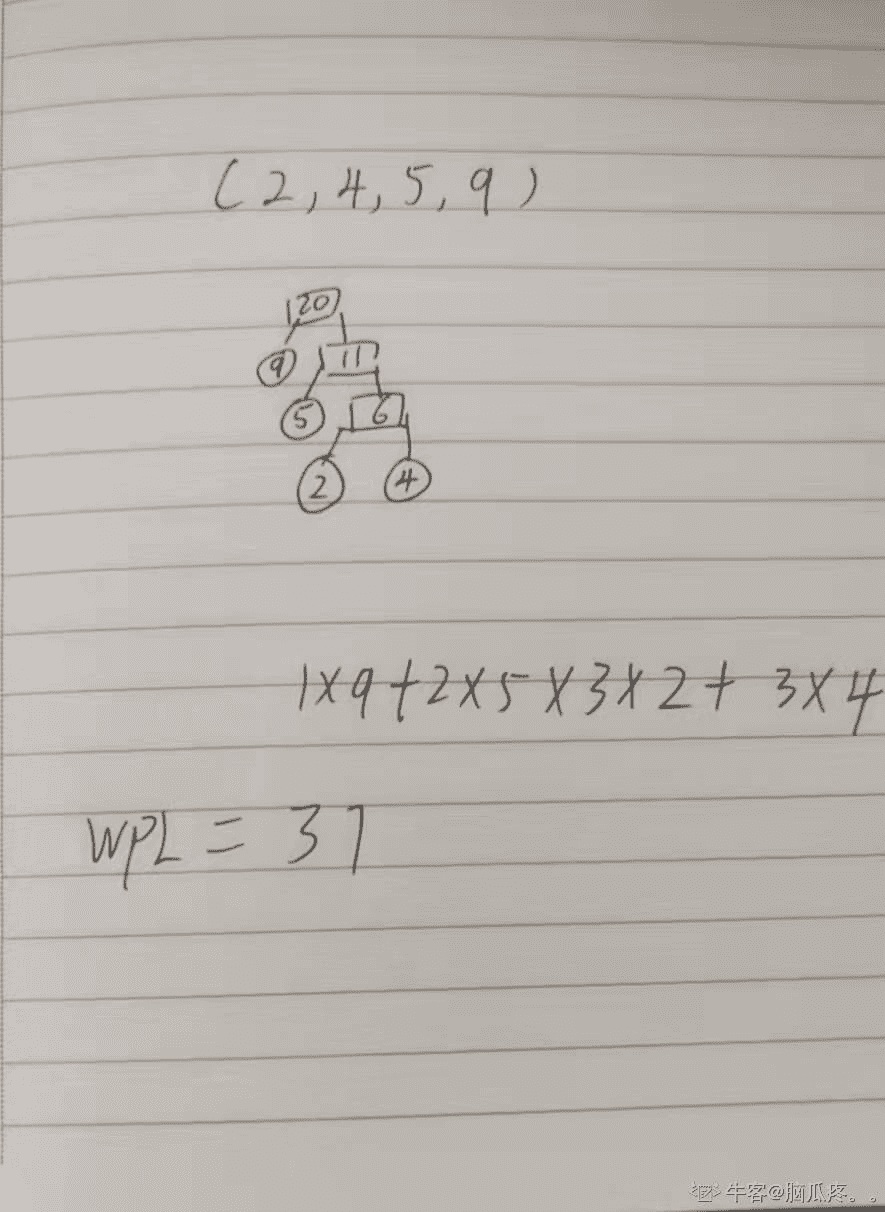 (2,4,5,9)
20
9 11
5 6
2 4
1×9+2×5×3×2+3×4
WPL=37
牛客@脑瓜疼。。